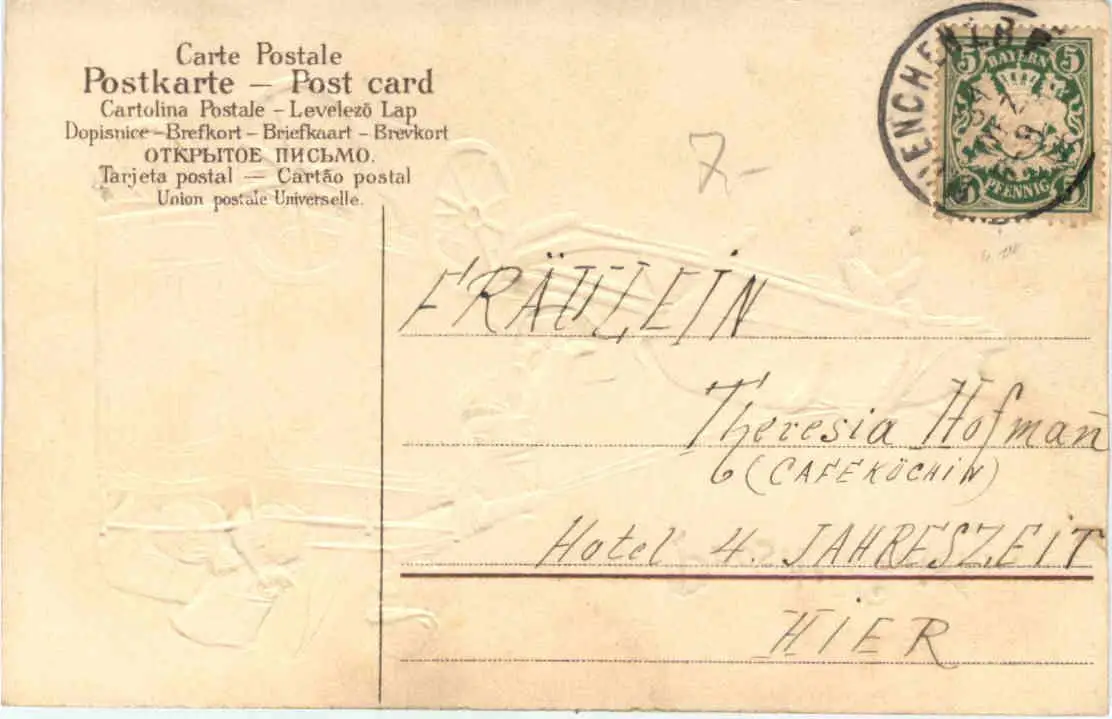 Carte Postale
Postkarte – Post card
Cartolina Postale – Levelező Lap
Dopisnice – Brefkort – Briefkaart – Brevkort
ОТКРЫТОЕ ПИСЬМО.
Tarjeta postal — Cartão postal
Union postale Universelle.
7-
5 BAYERN 5
5 PFENNIG 5
FRÄULEIN
Theresia Hofman
(CAFEKÖCHIN)
Hotel 4. JAHRESZEIT
HIER